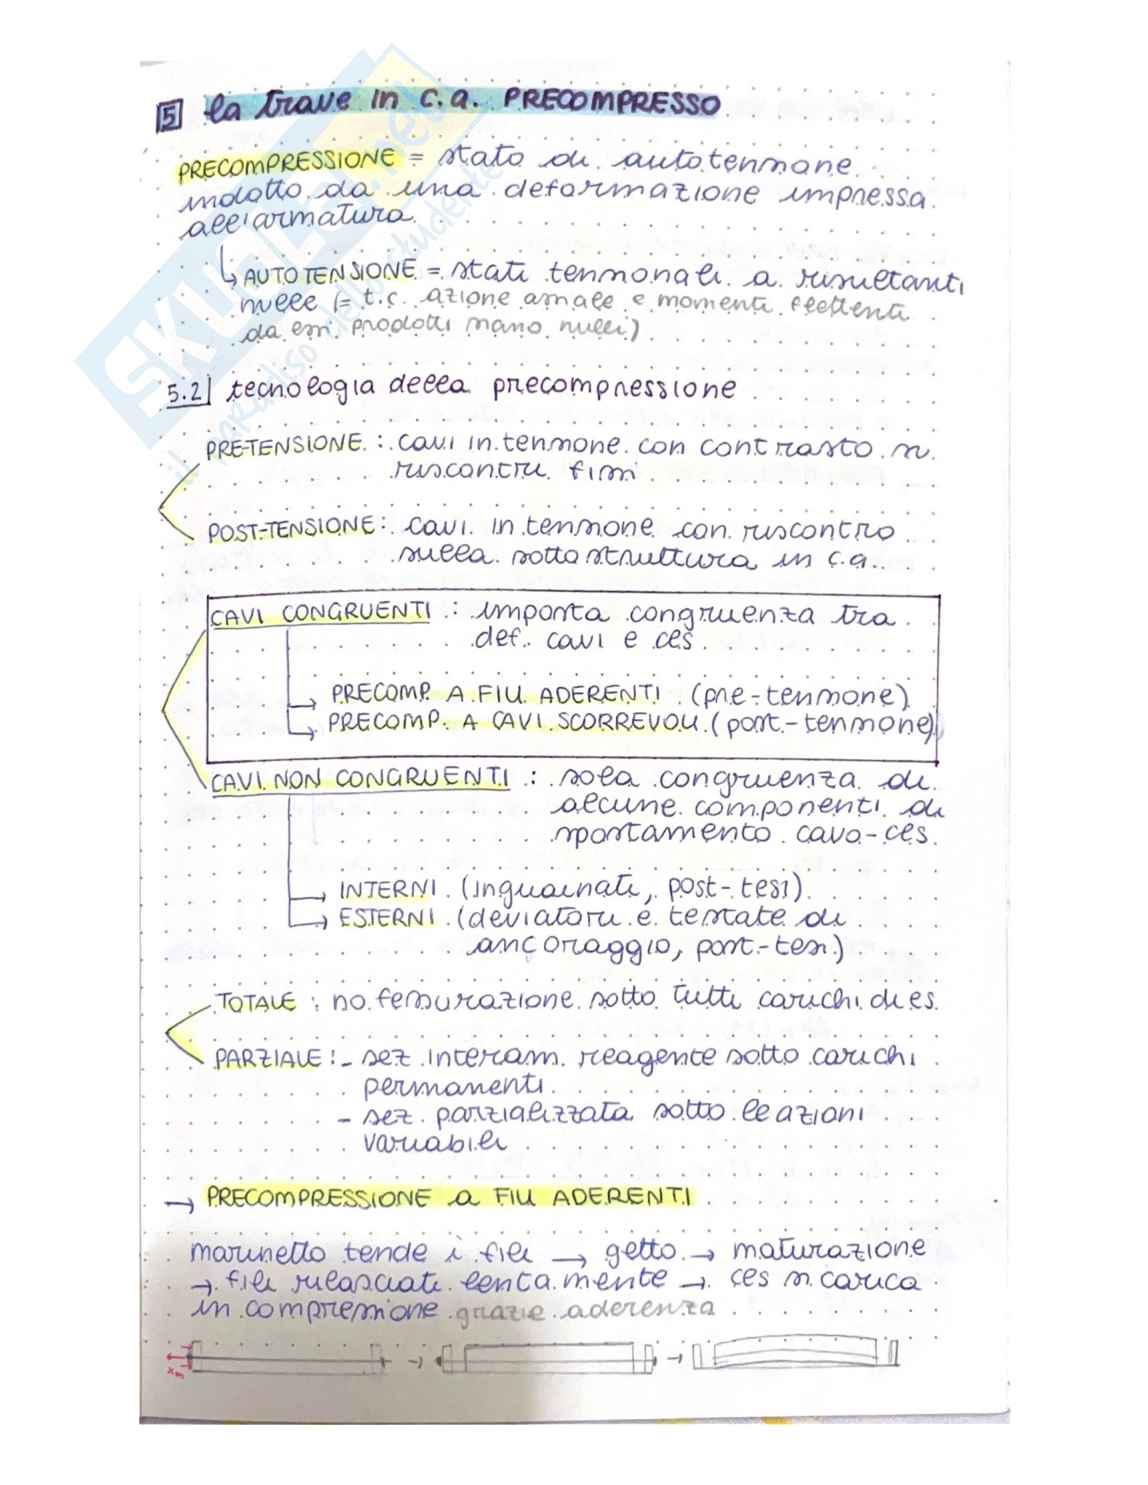 5 la trave in c.a. PRECOMPRESSO
PRECOMPRESSIONE = stato di autotensione
indotto da una deformazione impressa
all'armatura
↳ AUTOTENSIONE = stati tensionali a risultanti
nulle (= t.c. azione assiale e momenti flettenti
da essi prodotti siano nulli)
5.2 tecnologia della precompressione
PRE-TENSIONE : cavi in tensione con contrasto su
riscontri fissi
POST-TENSIONE : cavi in tensione con riscontro
sulla sottostruttura in c.a.
CAVI CONGRUENTI : imposta congruenza tra
def. cavi e cls
→ PRECOMP. A FILI ADERENTI (pre-tensione)
→ PRECOMP. A CAVI SCORREVOLI (post-tensione)
CAVI NON CONGRUENTI : sola congruenza di
alcune componenti di
spostamento cavo-cls.
→ INTERNI (inguainati, post-tesi)
→ ESTERNI (deviatori e testate di
ancoraggio, post-tesi)
TOTALE : no fessurazione sotto tutti carichi di es.
PARZIALE : - sez. interam. reagente sotto carichi
permanenti
- sez. parzializzata sotto le azioni
variabili
→ PRECOMPRESSIONE a FILI ADERENTI
marinetto tende i fili → getto → maturazione
→ fili rilasciati lentamente → cls si carica
in compressione grazie aderenza
→ →
SKUOLA.net
il paradiso dello studente